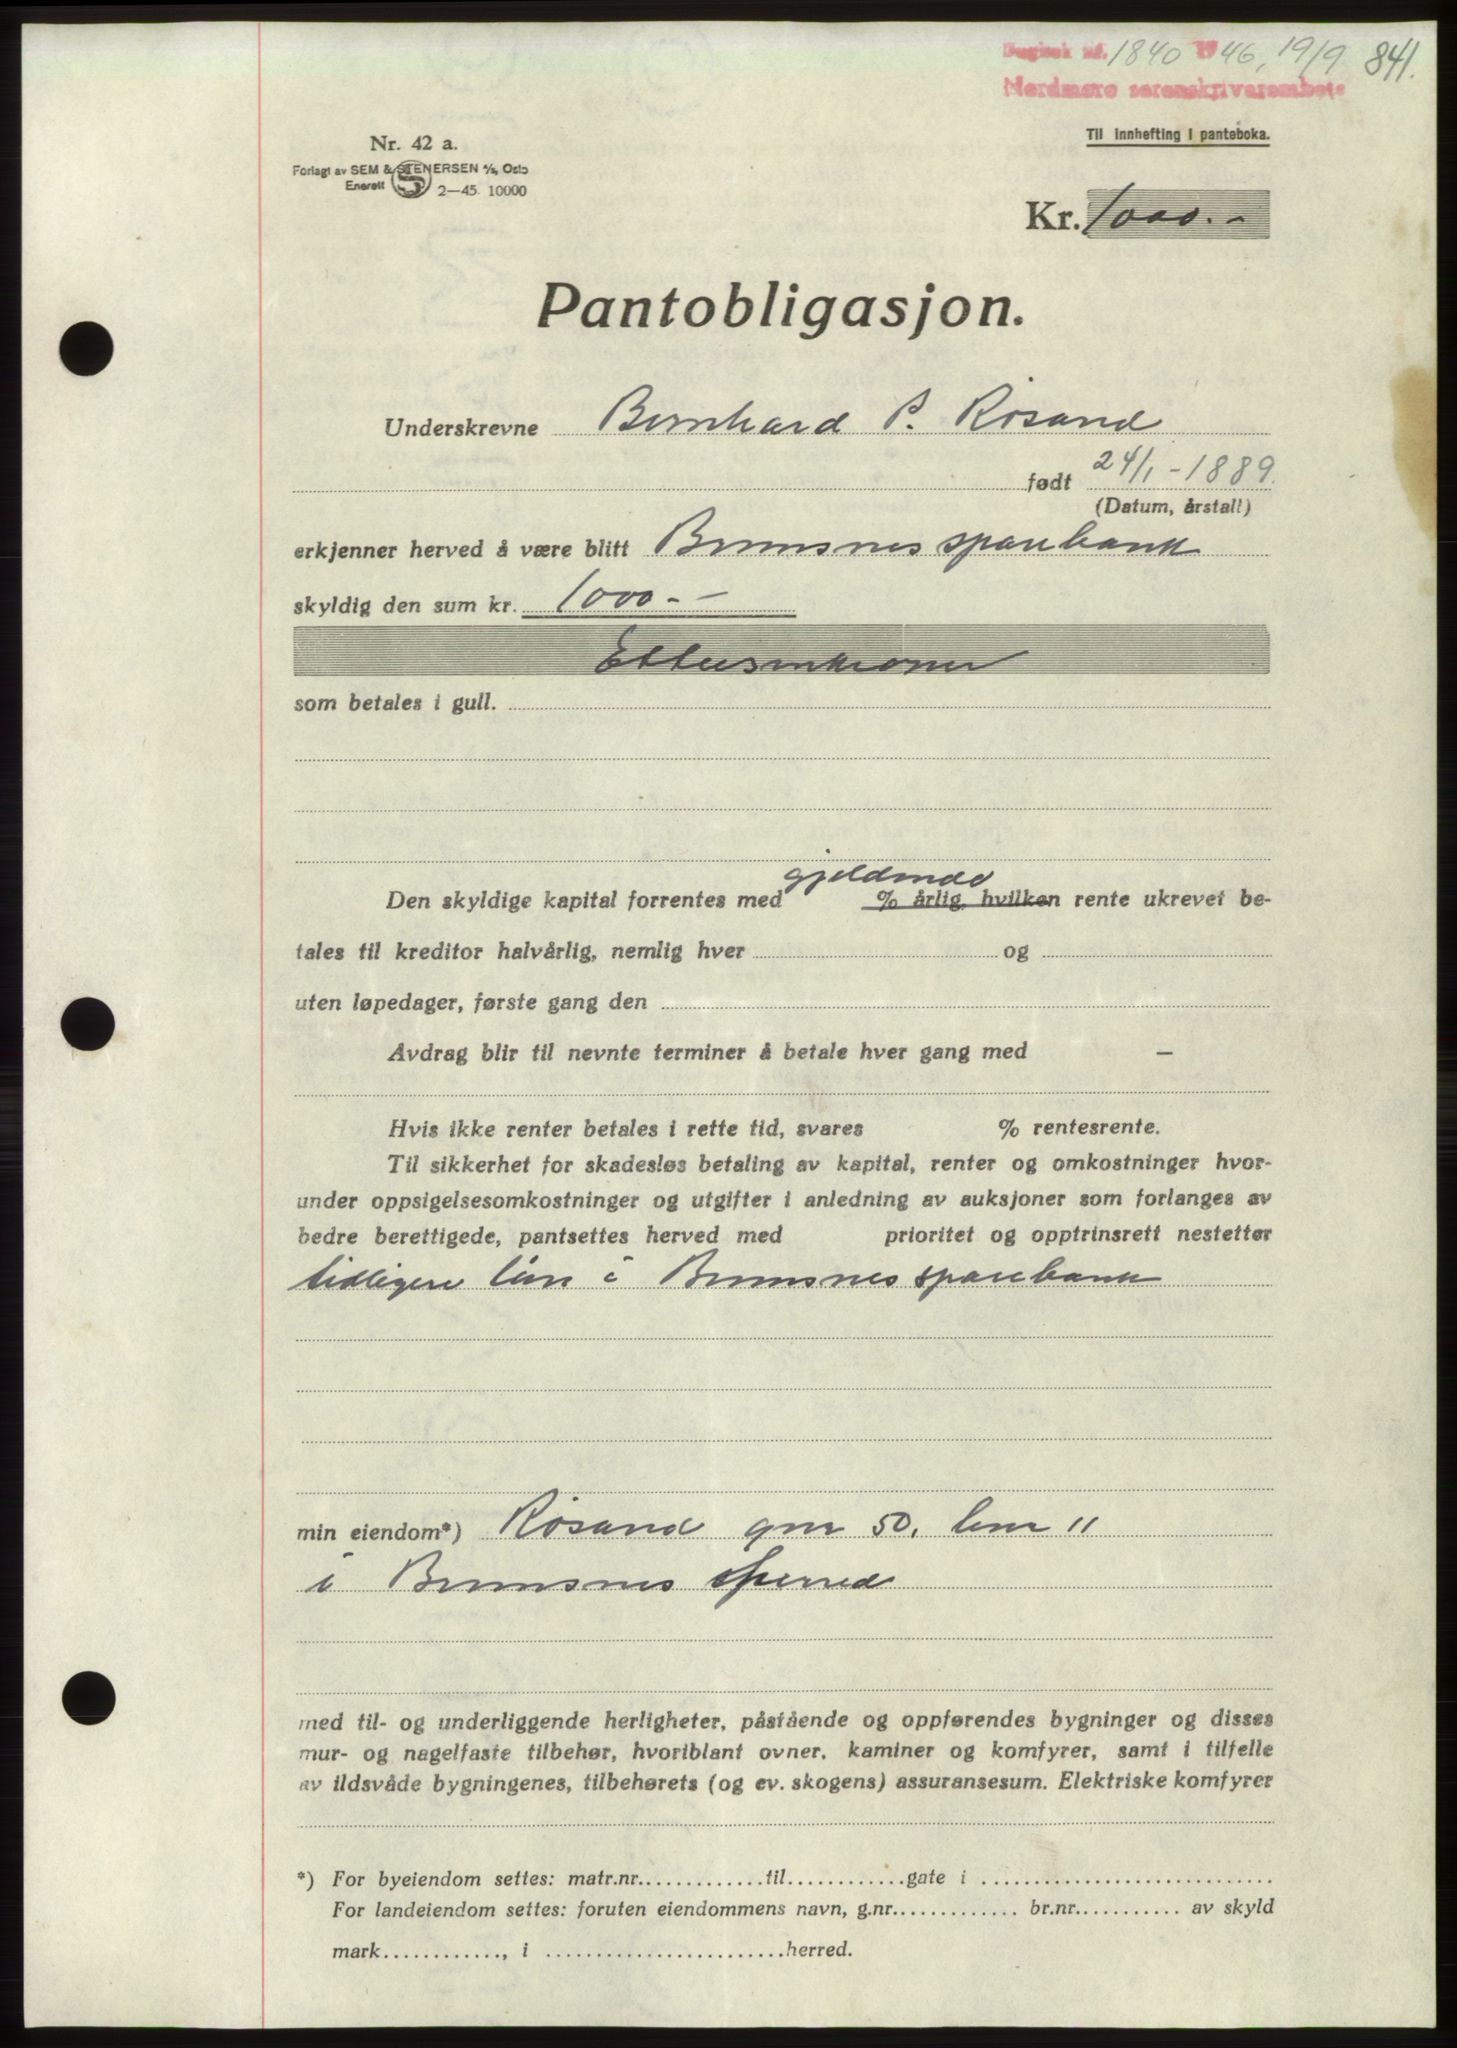 Dagbok nr. 1840 1946, 19/9 841.
Nordmøre sorenskriverembete
Til innhefting i panteboka.
Nr. 42 a.
Forlagt av SEM & STENERSEN A/S, Oslo
Enerett 2—45. 10000
Kr. 1000.-
Pantobligasjon.
Underskrevne Bernhard P. Røsand
født 24/1-1889.
(Datum, årstall)
erkjenner herved å være blitt Bremsnes sparebank
skyldig den sum kr. 1000.-
Ettusenkroner
som betales i gull.
gjeldende
Den skyldige kapital forrentes med % årlig, hvilken rente ukrevet be-
tales til kreditor halvårlig, nemlig hver og
uten løpedager, første gang den
Avdrag blir til nevnte terminer å betale hver gang med —
Hvis ikke renter betales i rette tid, svares % rentesrente.
Til sikkerhet for skadesløs betaling av kapital, renter og omkostninger hvor-
under oppsigelsesomkostninger og utgifter i anledning av auksjoner som forlanges av
bedre berettigede, pantsettes herved med prioritet og opptrinsrett nestetter
tidligere lån i Bremsnes sparebank
min eiendom*) Røsand gnr 50, bnr 11
i Bremsnes herred
med til- og underliggende herligheter, påstående og oppførendes bygninger og disses
mur- og nagelfaste tilbehør, hvoriblant ovner, kaminer og komfyrer, samt i tilfelle
av ildsvåde bygningenes, tilbehørets (og ev. skogens) assuransesum. Elektriske komfyrer
*) For byeiendom settes: matr.nr.............til............gate i ............................
For landeiendom settes: foruten eiendommens navn, g.nr............. br.nr........... av skyld
mark............, i ........................herred.